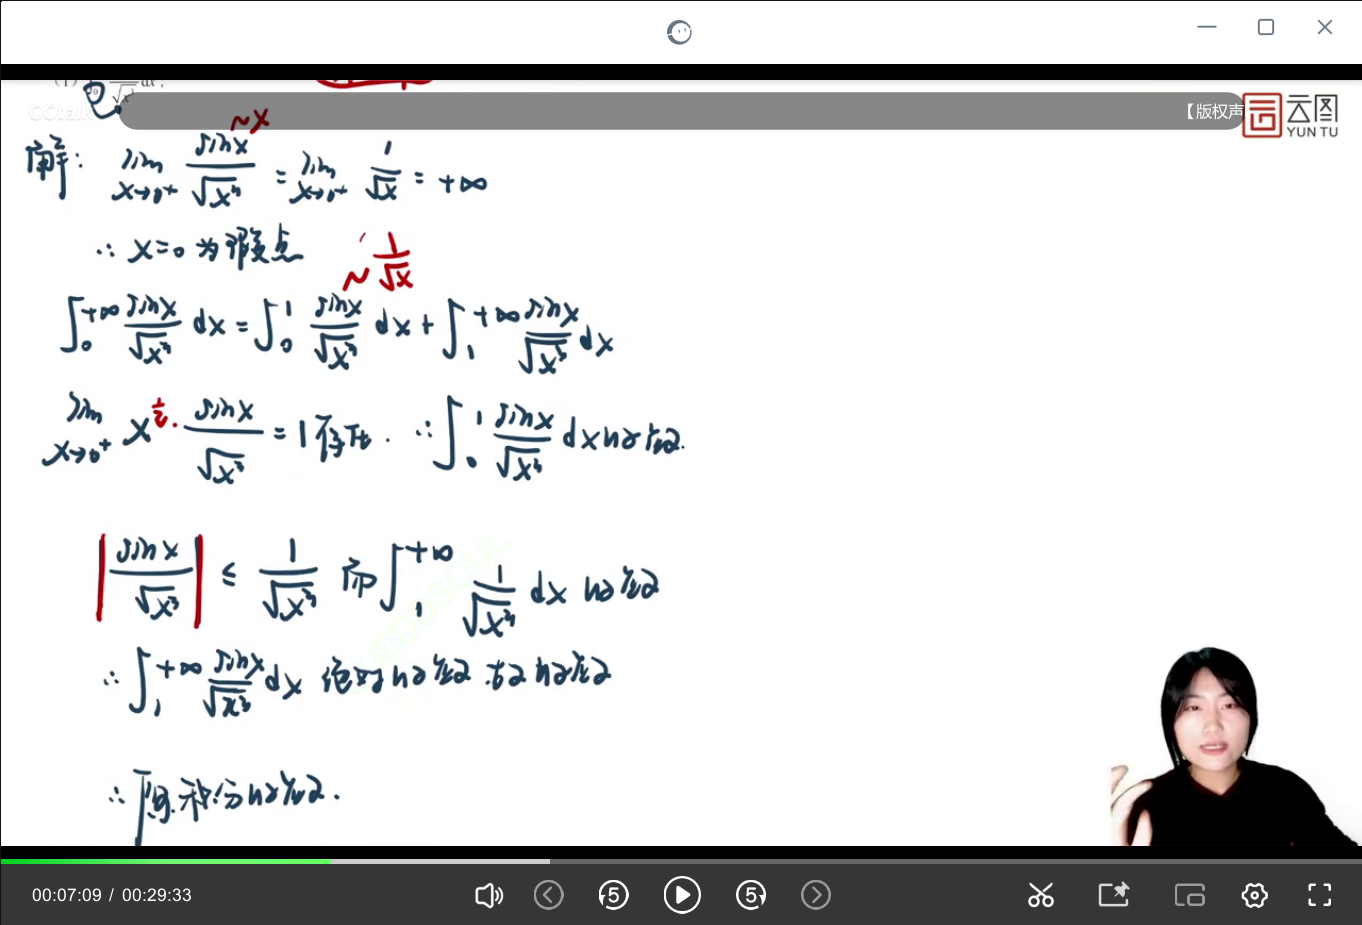 CCtalk
【版权声
云图
YUN TU
解: lim x→0⁺ sinx/√x³ ~x = lim x→0⁺ 1/√x = +∞
∴ x=0 为瑕点
~ 1/√x
∫₀^{+∞} sinx/√x³ dx = ∫₀¹ sinx/√x³ dx + ∫₁^{+∞} sinx/√x³ dx
lim x→0⁺ x^{1/2}· sinx/√x³ = 1 存在. ∴ ∫₀¹ sinx/√x³ dx 收敛.
|sinx/√x³| ≤ 1/√x³ 而 ∫₁^{+∞} 1/√x³ dx 收敛
∴ ∫₁^{+∞} sinx/√x³ dx 绝对收敛 故收敛
∴ 原积分收敛.
00:07:09 / 00:29:33
5
5